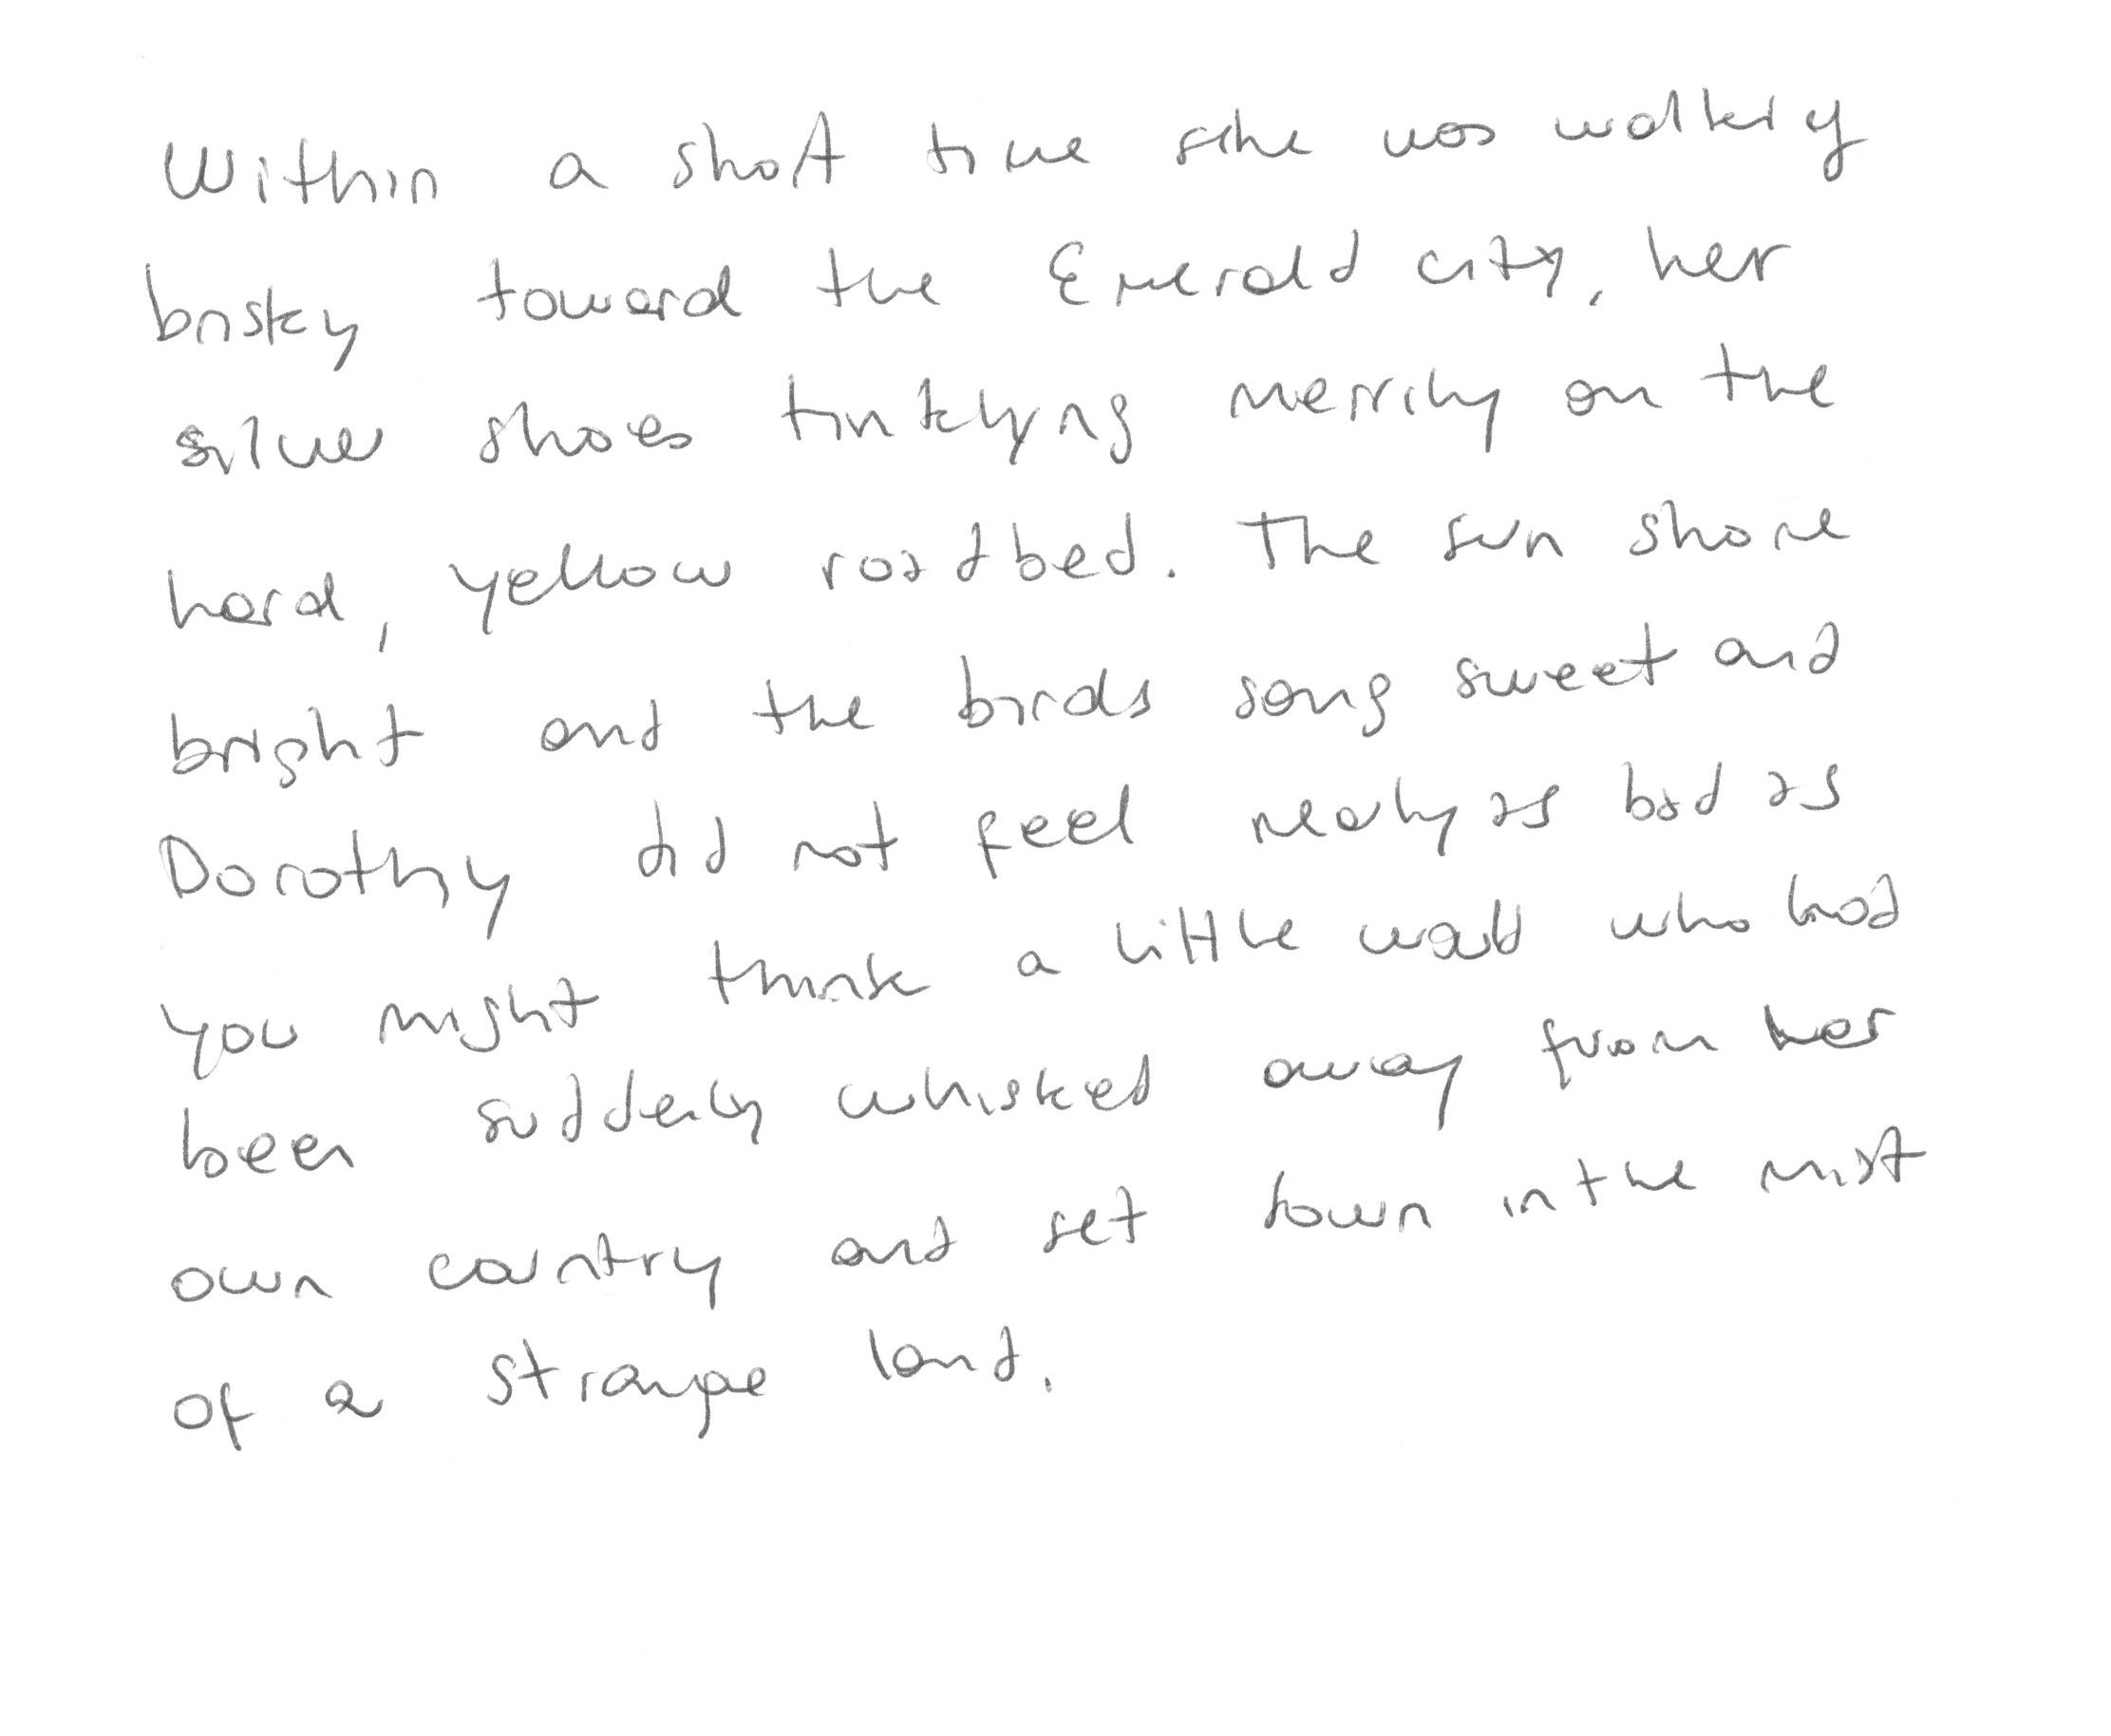 Within a short time she was walking
brisky toward the Emerald city, her
silver shoes tinklyng merrily on the
hard, yellow roadbed. The sun shone
bright and the birds song sweet and
Dorothy did not feel nearly as bad as
you might think a little would who had
been suddenly whisked away from her
own country and set down in the mist
of a strange land.